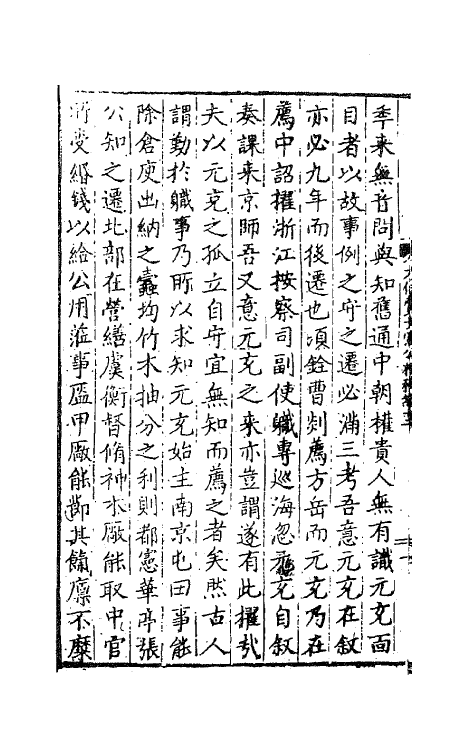 季来無音問與知舊通中朝權貴人無有識元充面
目者以故事例之守之遷必滿三考吾意元充在叙
亦必九年而後遷也頃銓曹剡薦方岳而元充乃在
薦中詔擢浙江按察司副使職專巡海忽元充自叙
奏課来京師吾又意元充之来亦豈謂遂有此擢㢤
夫以元充之孤立自守宜無知而薦之者矣然古人
謂勤於職事乃所以求知元充始主南京屯田事能
除倉庾出納之蠹均竹木抽分之利則都憲華亭張
公知之遷北部在營繕虞衡督脩神木厰能取中官
所受緡錢以給公用蒞事盔甲厰能節其餼廪不糜